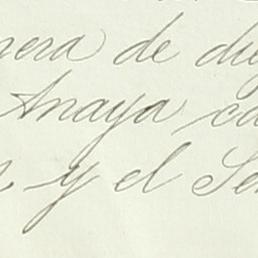 nera de du
Anaya ca
y el Se